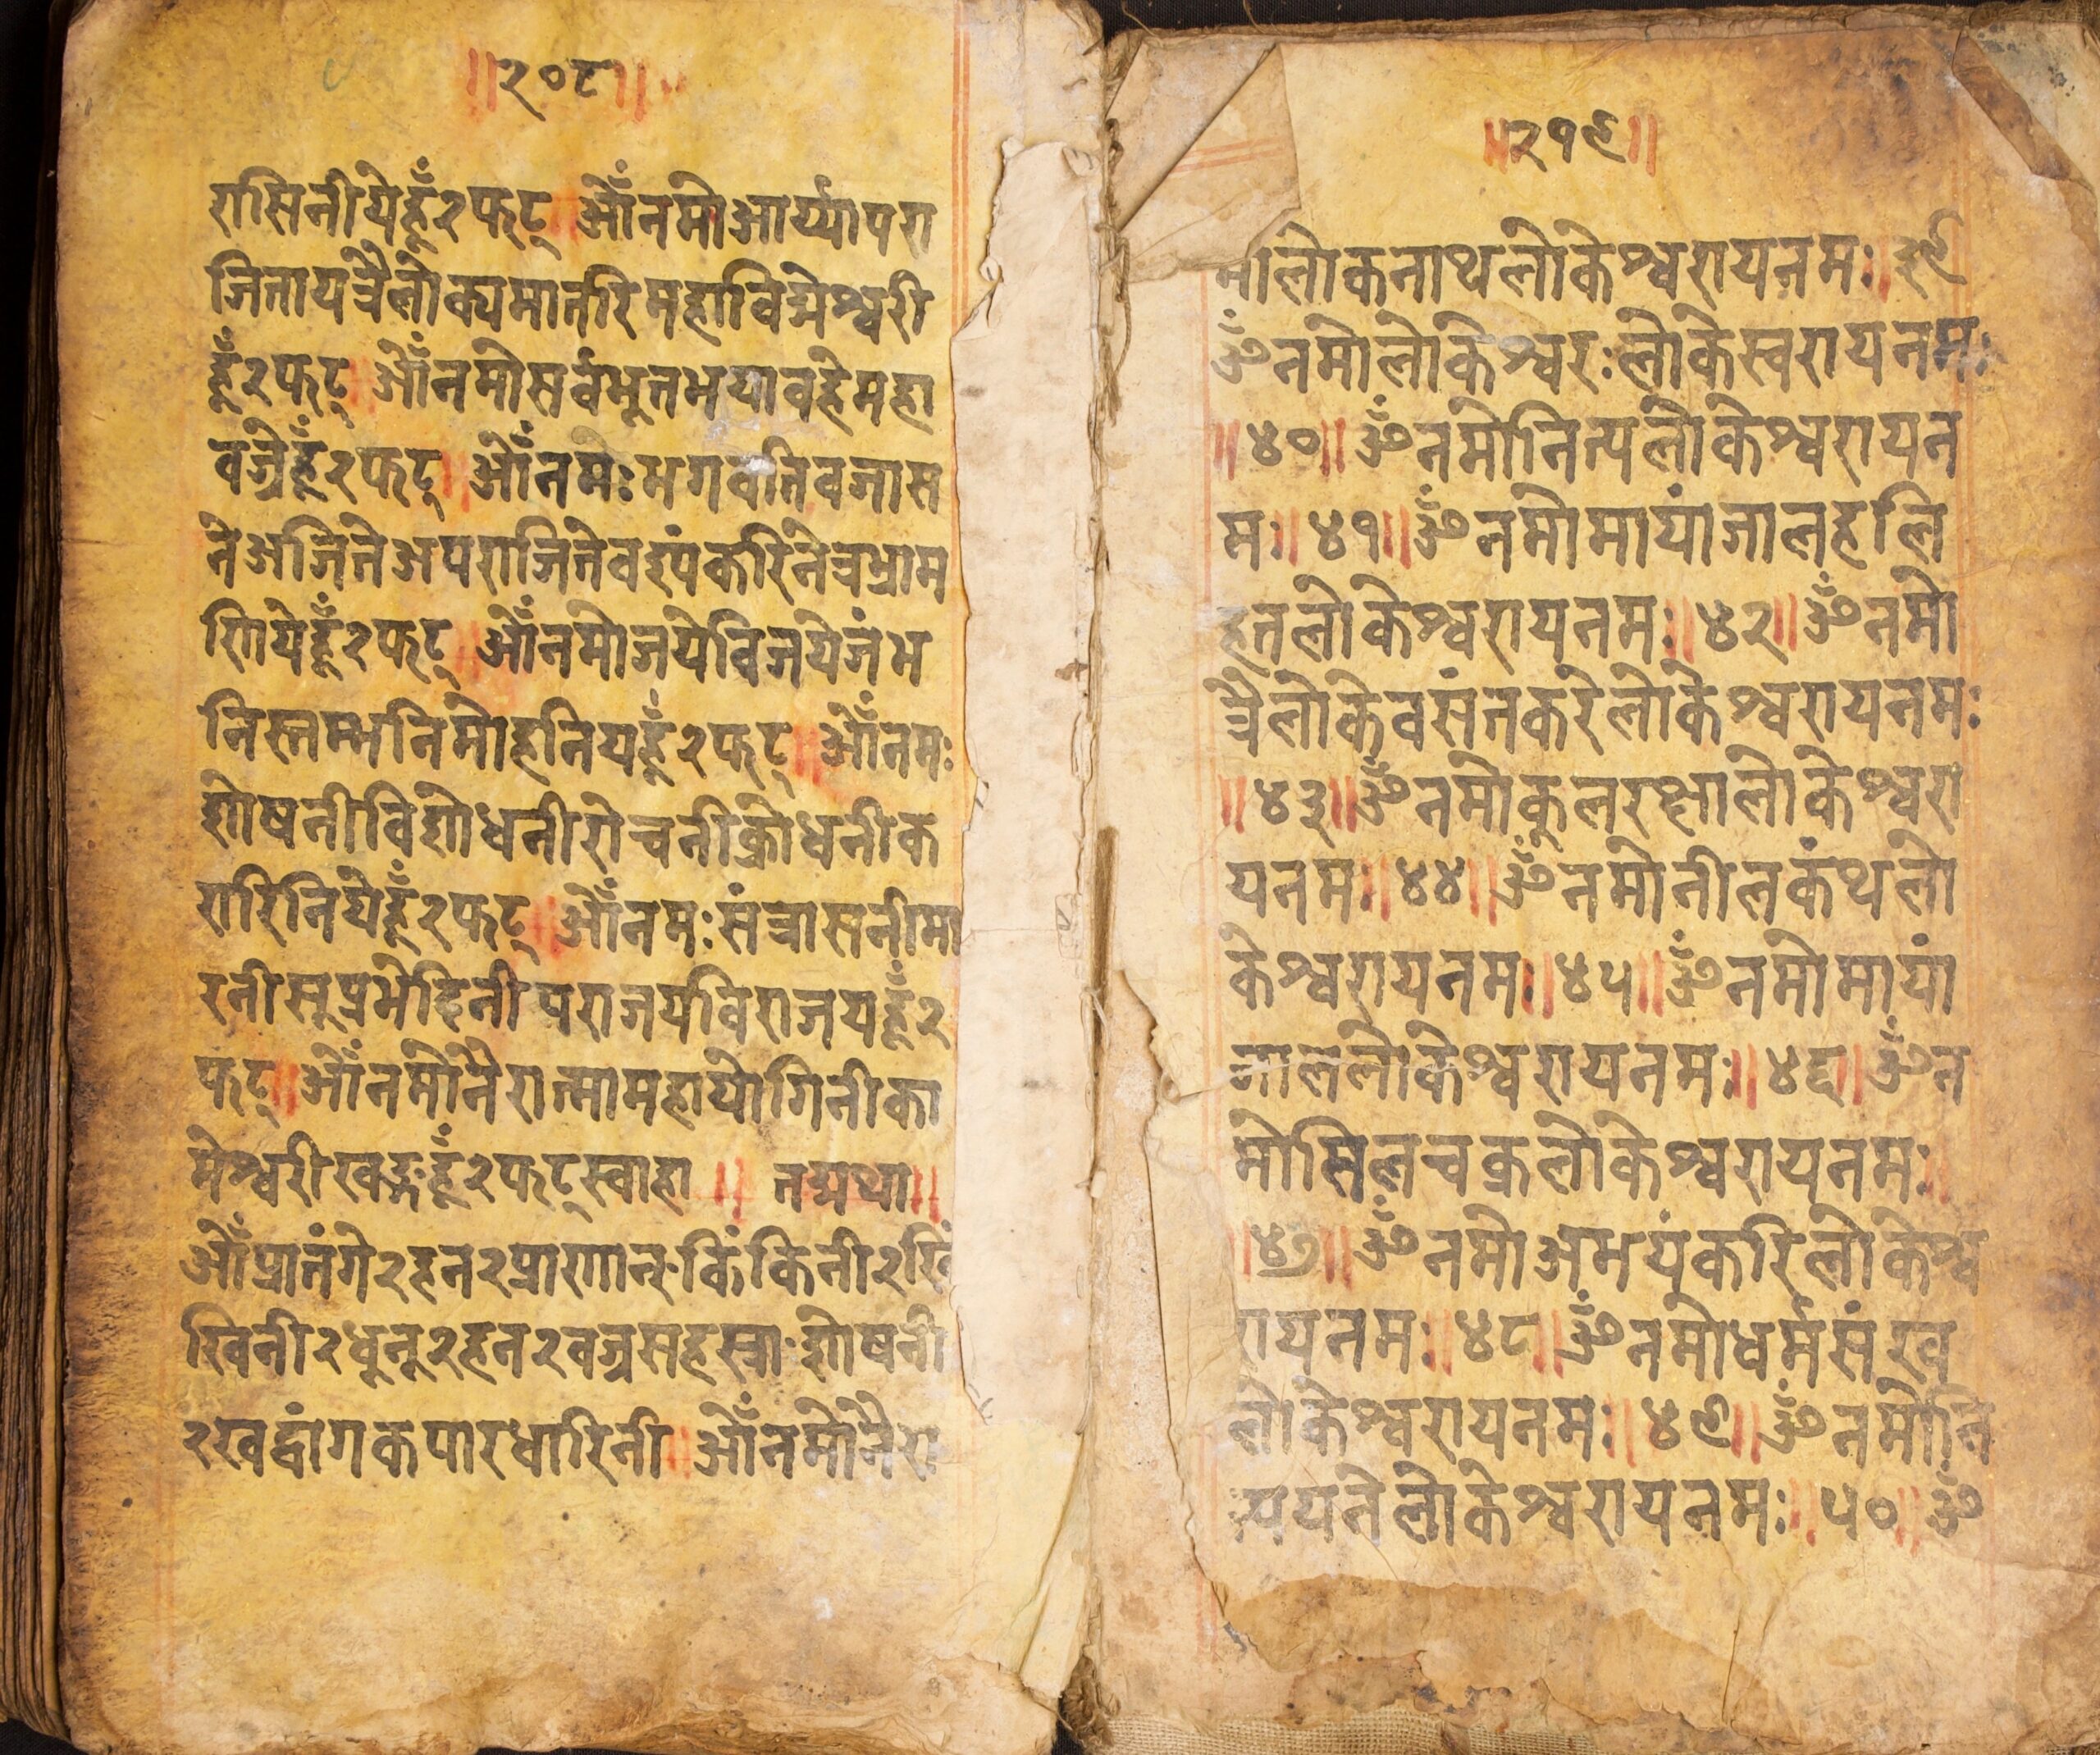 ॥२०८॥
रासिनीये हूँ २ फट् ॥ ओँ नमो आर्य्यापरा
जिताय त्रैलोक्यमातरि महाविद्येश्वरी
हूँ २ फट् ॥ ओँ नमो सर्वभूतभयावहे महा
वज्रे हूँ २ फट् ॥ ओँ नमः भगवति वजास
ने अजिते अपराजिते वश्यंकरि नेत्रभ्राम
णिये हूँ २ फट् ॥ ओँ नमो जये विजये जंभ
नि स्तम्भनि मोहनिय हूँ २ फट् ॥ ओँ नमः
शोषनी विशोधनी रोचनी क्रोधनी क
रारिनिये हूँ २ फट् ॥ ओँ नमः संत्रासनी मा
रनी सुप्रभेदिनी पराजय विराजय हूँ २
फट् ॥ ओँ नमो नैरात्मा महायोगिनी का
मेश्वरी खङ्ग हूँ २ फट् स्वाहा ॥ तद्यथा ॥
ओँ प्रानंगे २ हन २ प्राणान् किंकिनी २ खिं
खिनी २ धुनू २ हन २ वज्रसहस्त्रा शोषनी
२ खद्वांगकपारधारिनी ॥ ओँ नमो नैरा
॥२१९॥
मोलोकनाथलोकेश्वराय नमः ॥ ३९
ॐ नमो लोकेश्वरः लोकेस्वराय नमः
॥ ४० ॥ ॐ नमो नित्यलोकेश्वराय न
मः ॥ ४१ ॥ ॐ नमो मायांजालहलि
हतलोकेश्वराय नमः ॥ ४२ ॥ ॐ नमो
त्रैलोकेवसंतकरेलोकेश्वराय नमः
॥ ४३ ॥ ॐ नमो कुलरत्नालोकेश्वरा
य नमः ॥ ४४ ॥ ॐ नमो नीलकंथलो
केश्वराय नमः ॥ ४५ ॥ ॐ नमो मायां
जाललोकेश्वराय नमः ॥ ४६ ॥ ॐ न
मो सितचक्रलोकेश्वराय नमः ॥
॥ ४७ ॥ ॐ नमो अभयंकरिलोकेश्व
राय नमः ॥ ४८ ॥ ॐ नमो धर्मसंख
लोकेश्वराय नमः ॥ ४९ ॥ ॐ नमो नि
यनेलोकेश्वराय नमः ॥ ५० ॥ ॐ